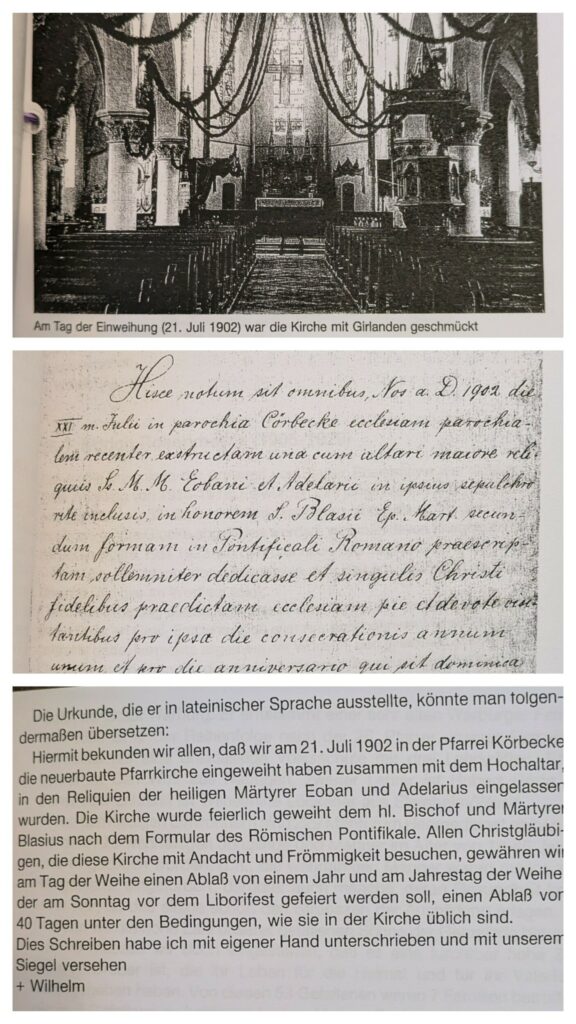 Am Tag der Einweihung (21. Juli 1902) war die Kirche mit Girlanden geschmückt
Hisce notum sit omnibus, Nos a. D. 1902 die
XXI m. Julii in parochia Cörbecke ecclesiam parochia-
lem recenter exstructam una cum altari maiore reli-
quis Ss. M. M. Eobani et Adelarii in ipsius sepulchro
rite inclusis, in honorem S. Blasii Ep. Mart. secun-
dum formam in Pontificali Romano praescrip-
tam sollemniter dedicasse et singulis Christi
fidelibus praedictam ecclesiam pie et devote visi-
tantibus pro ipsa die consecrationis annum
unum et pro die anniversario qui sit dominica
Die Urkunde, die er in lateinischer Sprache ausstellte, könnte man folgen-
dermaßen übersetzen:
Hiermit bekunden wir allen, daß wir am 21. Juli 1902 in der Pfarrei Körbecke
die neuerbaute Pfarrkirche eingeweiht haben zusammen mit dem Hochaltar,
in den Reliquien der heiligen Märtyrer Eoban und Adelarius eingelassen
wurden. Die Kirche wurde feierlich geweiht dem hl. Bischof und Märtyrer
Blasius nach dem Formular des Römischen Pontifikale. Allen Christgläubi-
gen, die diese Kirche mit Andacht und Frömmigkeit besuchen, gewähren wir
am Tag der Weihe einen Ablaß von einem Jahr und am Jahrestag der Weihe,
der am Sonntag vor dem Liborifest gefeiert werden soll, einen Ablaß von
40 Tagen unter den Bedingungen, wie sie in der Kirche üblich sind.
Dies Schreiben habe ich mit eigener Hand unterschrieben und mit unserem
Siegel versehen
+ Wilhelm